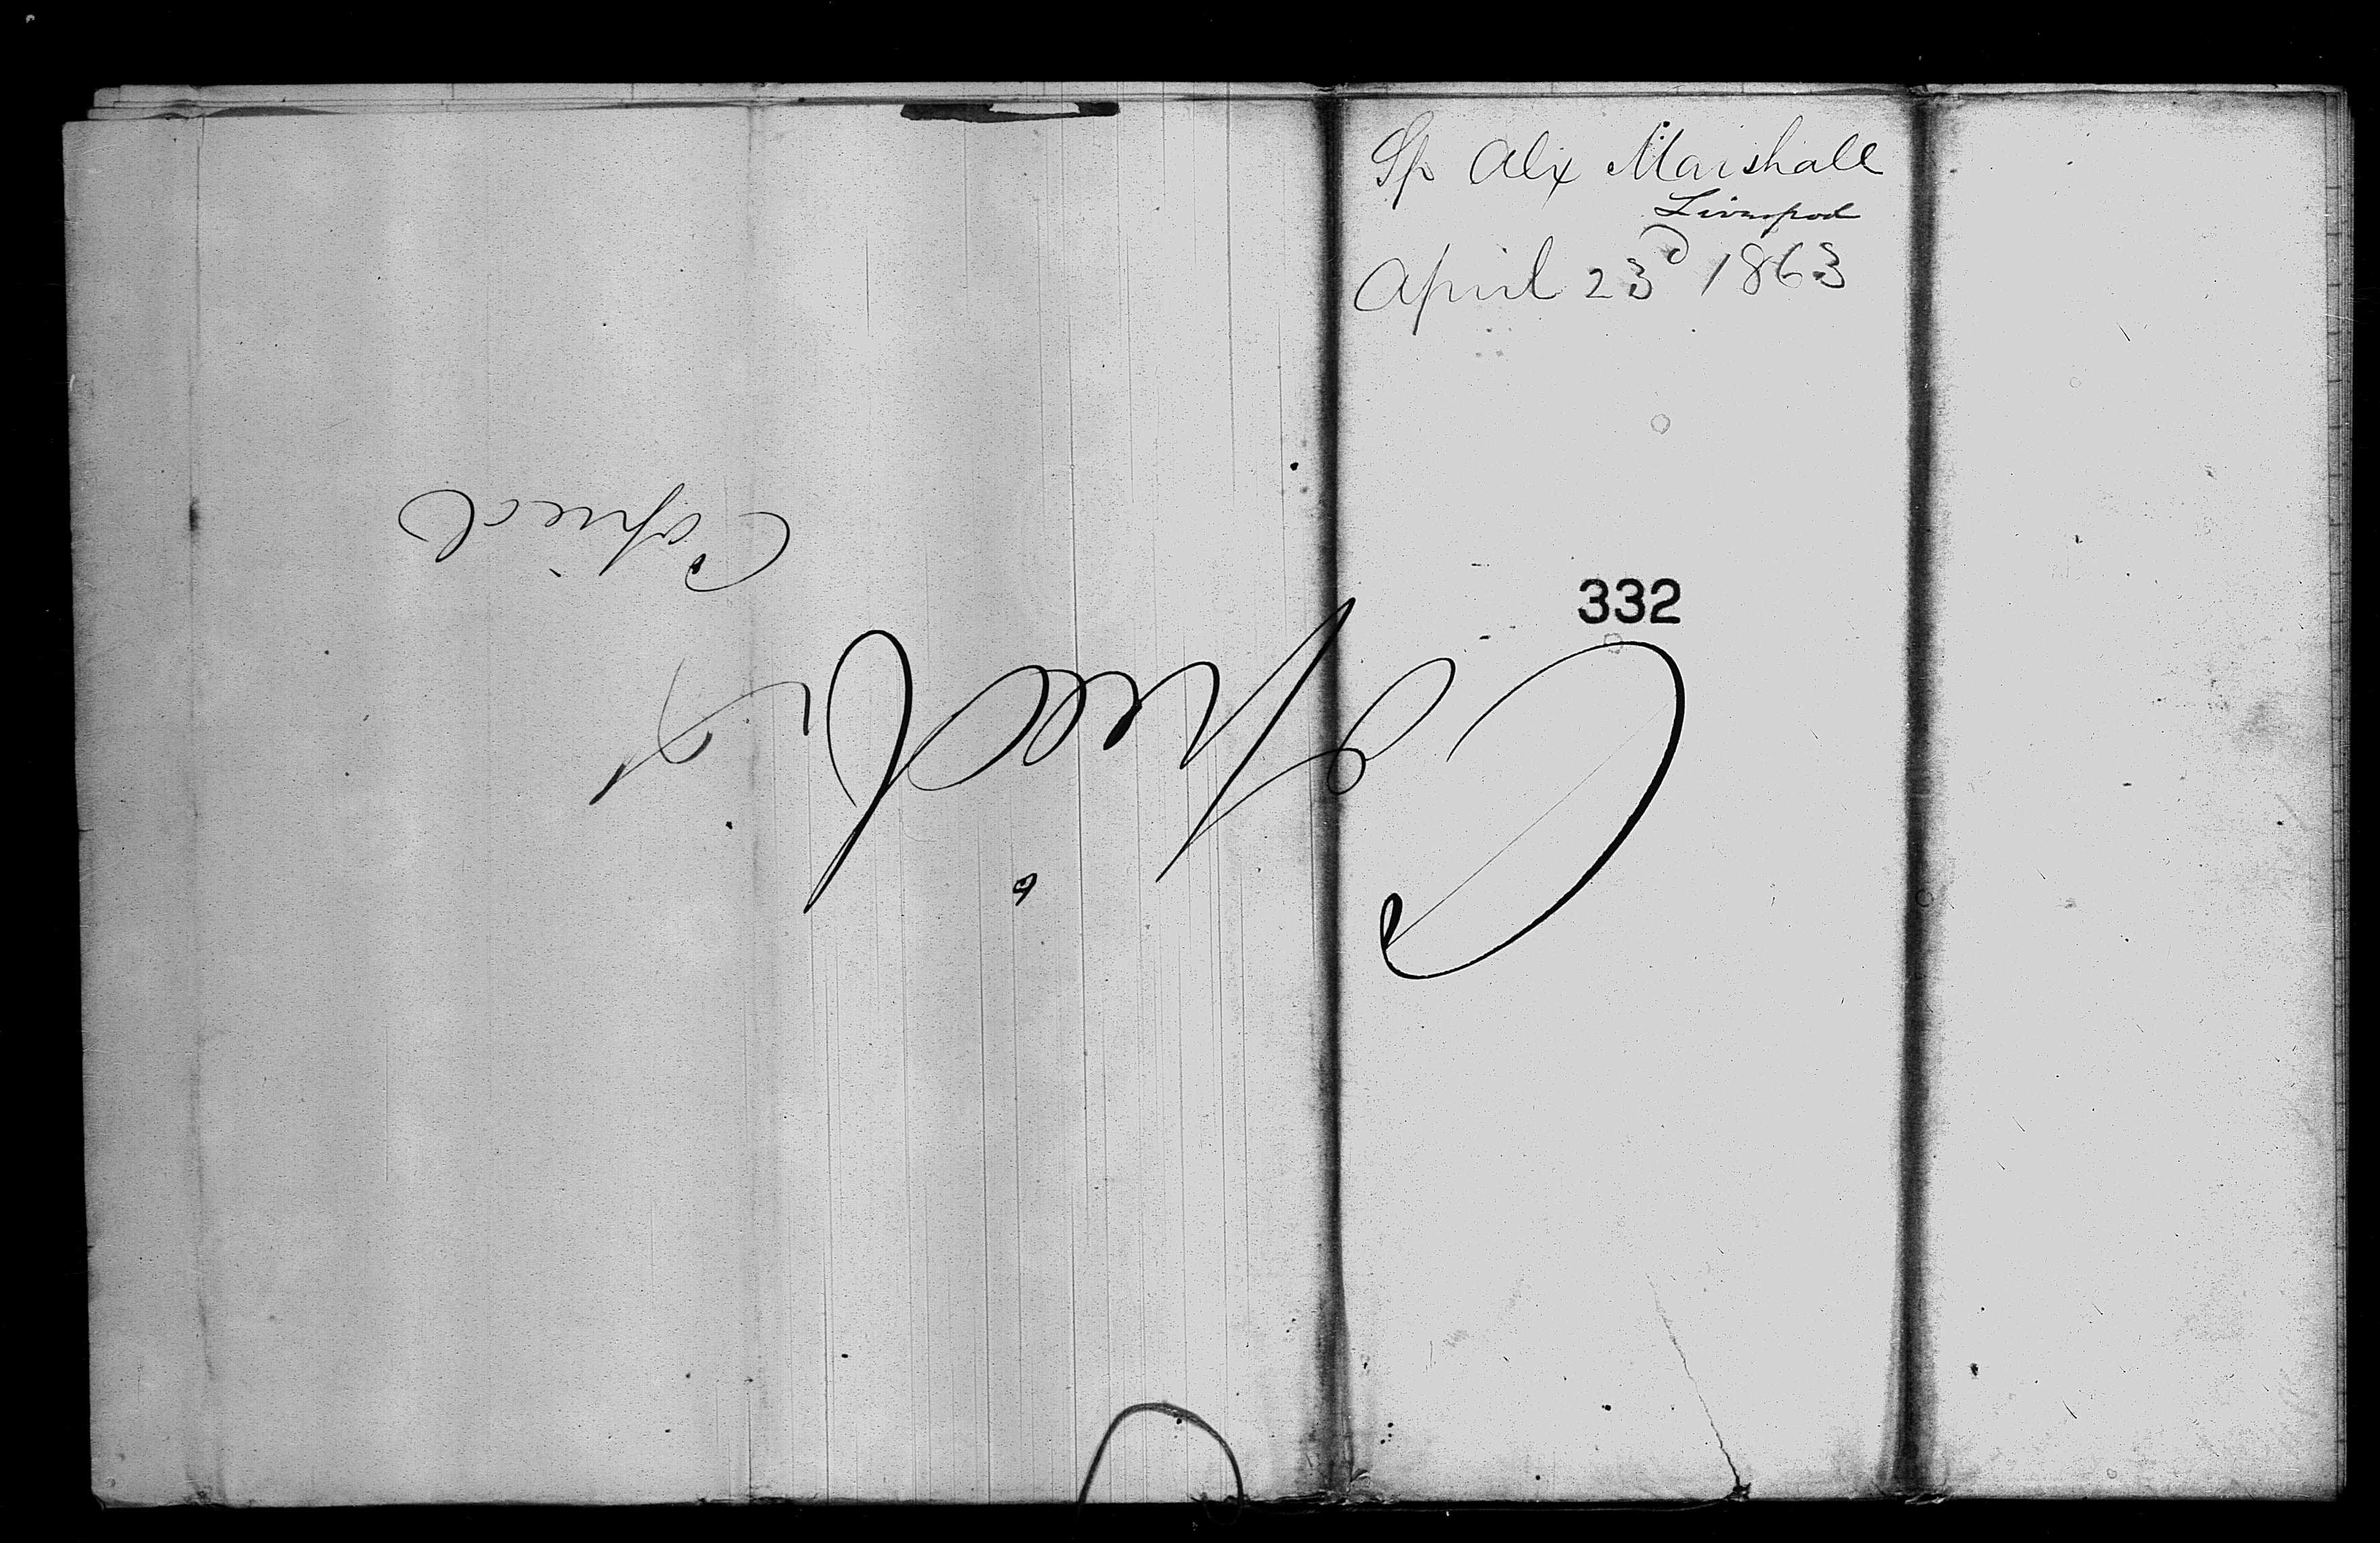 Sp Alx Marshall
Liverpool
April 23d 1863
332
Copied
Copied